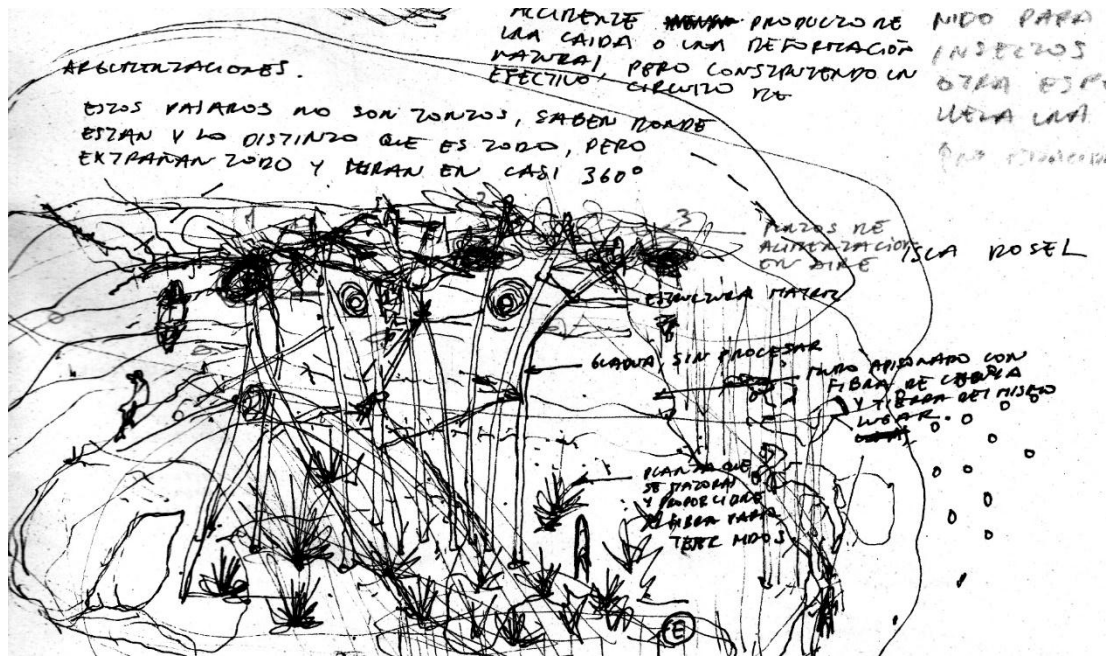 ACCIDENTE PRODUCTO DE
UNA CAIDA O UNA DEFORMACIÓN
NATURAL, PERO CONSTRUYENDO UN
EFECTIVO CIRCUITO DE
NIDO PARA
INSECTOS
OTRA ESP
UNA
ARGUMENTACIONES.
ESTOS PAJAROS NO SON TONTOS, SABEN DONDE
ESTAN Y LO DISTINTO QUE ES TODO, PERO
EXTRAÑAN TODO Y MIRAN EN CASI 360°
1
3
PUNTOS DE
ALIMENTACIÓN
EN AIRE
ISLA ROSEL
ESTRUCTURA MATRIZ
GUADUA, SIN PROCESAR
MURO APISONADO CON
FIBRA DE
Y TIERRA DEL MISMO
LUGAR.
PLANTA QUE
SE
Y PROPORCIONE
FIBRA PARA
TEJER NIDOS.
E